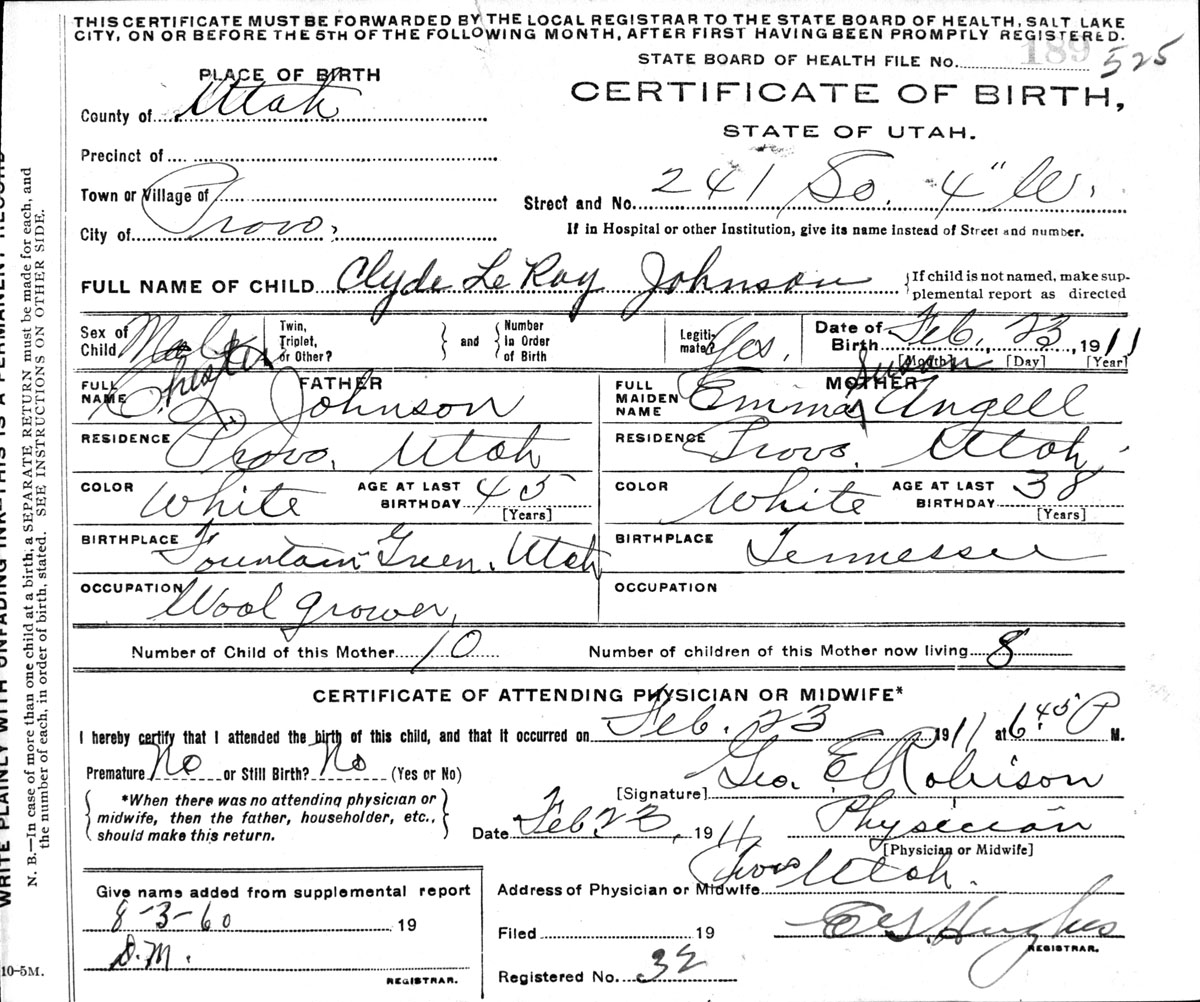 THIS CERTIFICATE MUST BE FORWARDED BY THE LOCAL REGISTRAR TO THE STATE BOARD OF HEALTH, SALT LAKE
CITY, ON OR BEFORE THE 5TH OF THE FOLLOWING MONTH, AFTER FIRST HAVING BEEN PROMPTLY REGISTERED.
STATE BOARD OF HEALTH FILE No. 189 525
PLACE OF BIRTH
CERTIFICATE OF BIRTH,
County of Utah
STATE OF UTAH.
Precinct of
Town or Village of
Street and No. 241 So. 4" W.
City of Provo,
If in Hospital or other Institution, give its name instead of Street and number.
FULL NAME OF CHILD Clyde Le Roy Johnson
If child is not named, make sup-
plemental report as directed
Sex of Child Male
Twin, Triplet, or Other? and Number In Order of Birth
Legiti-mate? Yes.
Date of Birth Feb. 23, 1911
[Month] [Day] [Year]
FATHER
FULL NAME Chester C. J. Johnson
MOTHER
FULL MAIDEN NAME Emma Susan Angell
RESIDENCE Provo, Utah
RESIDENCE Provo, Utah
COLOR White AGE AT LAST BIRTHDAY 45 [Years]
COLOR White AGE AT LAST BIRTHDAY 38 [Years]
BIRTHPLACE Fountain Green, Utah
BIRTHPLACE Tennessee
OCCUPATION Wool grower,
OCCUPATION
Number of Child of this Mother 10 Number of children of this Mother now living 8
CERTIFICATE OF ATTENDING PHYSICIAN OR MIDWIFE*
I hereby certify that I attended the birth of this child, and that it occurred on Feb. 23 1911 at 6 45 P M.
Premature No or Still Birth? No (Yes or No)
[Signature] Geo. E. Robison
*When there was no attending physician or
midwife, then the father, householder, etc.,
should make this return.
Date Feb. 23, 1911 Physician
[Physician or Midwife]
Address of Physician or Midwife Provo Utah.
Give name added from supplemental report
8-3-60 19
D.M.
REGISTRAR.
Filed 19 Hughes
REGISTRAR.
Registered No. 32
WRITE PLAINLY WITH UNFADING INK—THIS IS A PERMANENT RECORD
N. B.—In case of more than one child at a birth, a SEPARATE RETURN must be made for each, and
the number of each, in order of birth, stated. SEE INSTRUCTIONS ON OTHER SIDE.
10-5M.